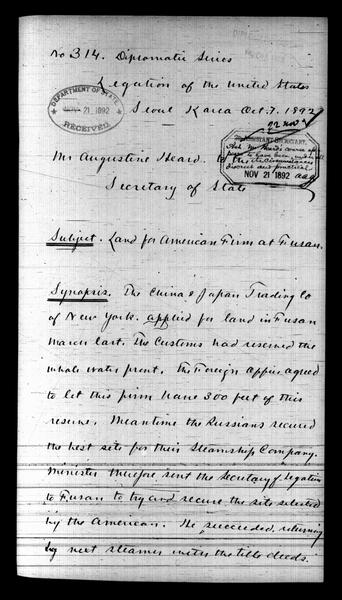 No 314. Diplomatic Series
Legation of the United States
Seoul Korea Oct. 7. 1892
DEPARTMENT OF STATE,
NOV 21 1892
RECEIVED.
22 Nov
ASSISTANT SECRETARY,
NOV 21 1892
Mr Augustine Heard. to the
Secretary of State
Subject. Land for American Firm at Fusan.
Synopsis. The China & Japan Trading Co
of New York. applied for land in Fusan
March last. The Customs had reserved the
whole water front. The Foreign Office agreed
to let this firm have 300 feet of this
reserve. Meantime the Russians secured
the best site for their Steamship Company.
Minister therefore sent the Secretary of Legation
to Fusan to try and secure the site selected
by the American. He succeeded, returning
by next steamer with the title deeds.